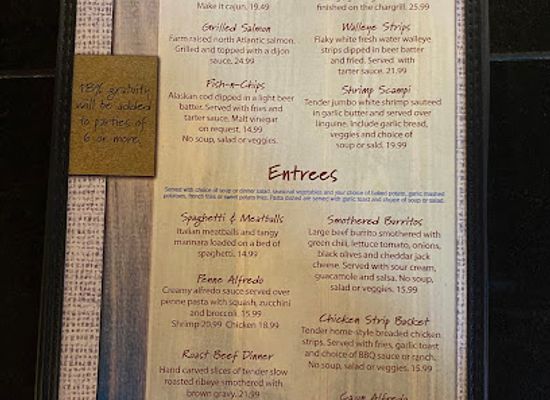 Make it cajun. 19.49
Grilled Salmon
Farm raised north Atlantic salmon.
Grilled and topped with a dijon
sauce. 24.99
Fish-n-Chips
Alaskan cod dipped in a light beer
batter. Served with fries and
tarter sauce. Malt vinegar
on request. 14.99
No soup, salad or veggies.
finished on the chargrill. 25.99
Walleye Strips
Flaky white fresh water walleye
strips dipped in beer batter
and fried. Served with
tarter sauce. 21.99
Shrimp Scampi
Tender jumbo white shrimp sauteed
in garlic butter and served over
linguine. Include garlic bread,
veggies and choice of
soup or salad. 19.99
18% gratuity
will be added
to parties of
6 or more.
Entrees
Served with choice of soup or dinner salad, seasonal vegetables and your choice of baked potato, garlic mashed
potatoes, french fries or sweet potato fries. Pasta dishes are served with garlic toast and choice of soup or salad.
Spaghetti & Meatballs
Italian meatballs and tangy
marinara loaded on a bed of
spaghetti. 14.99
Penne Alfredo
Creamy alfredo sauce served over
penne pasta with squash, zucchini
and broccoli. 15.99
Shrimp 20.99 Chicken 18.99
Roast Beef Dinner
Hand carved slices of tender slow
roasted ribeye smothered with
brown gravy. 21.99
Smothered Burritos
Large beef burrito smothered with
green chili, lettuce tomato, onions,
black olives and cheddar jack
cheese. Served with sour cream,
guacamole and salsa. No soup,
salad or veggies. 15.99
Chicken Strip Basket
Tender home-style breaded chicken
strips. Served with fries, garlic toast
and choice of BBQ sauce or ranch.
No soup, salad or veggies. 15.99
Cajun Alfredo